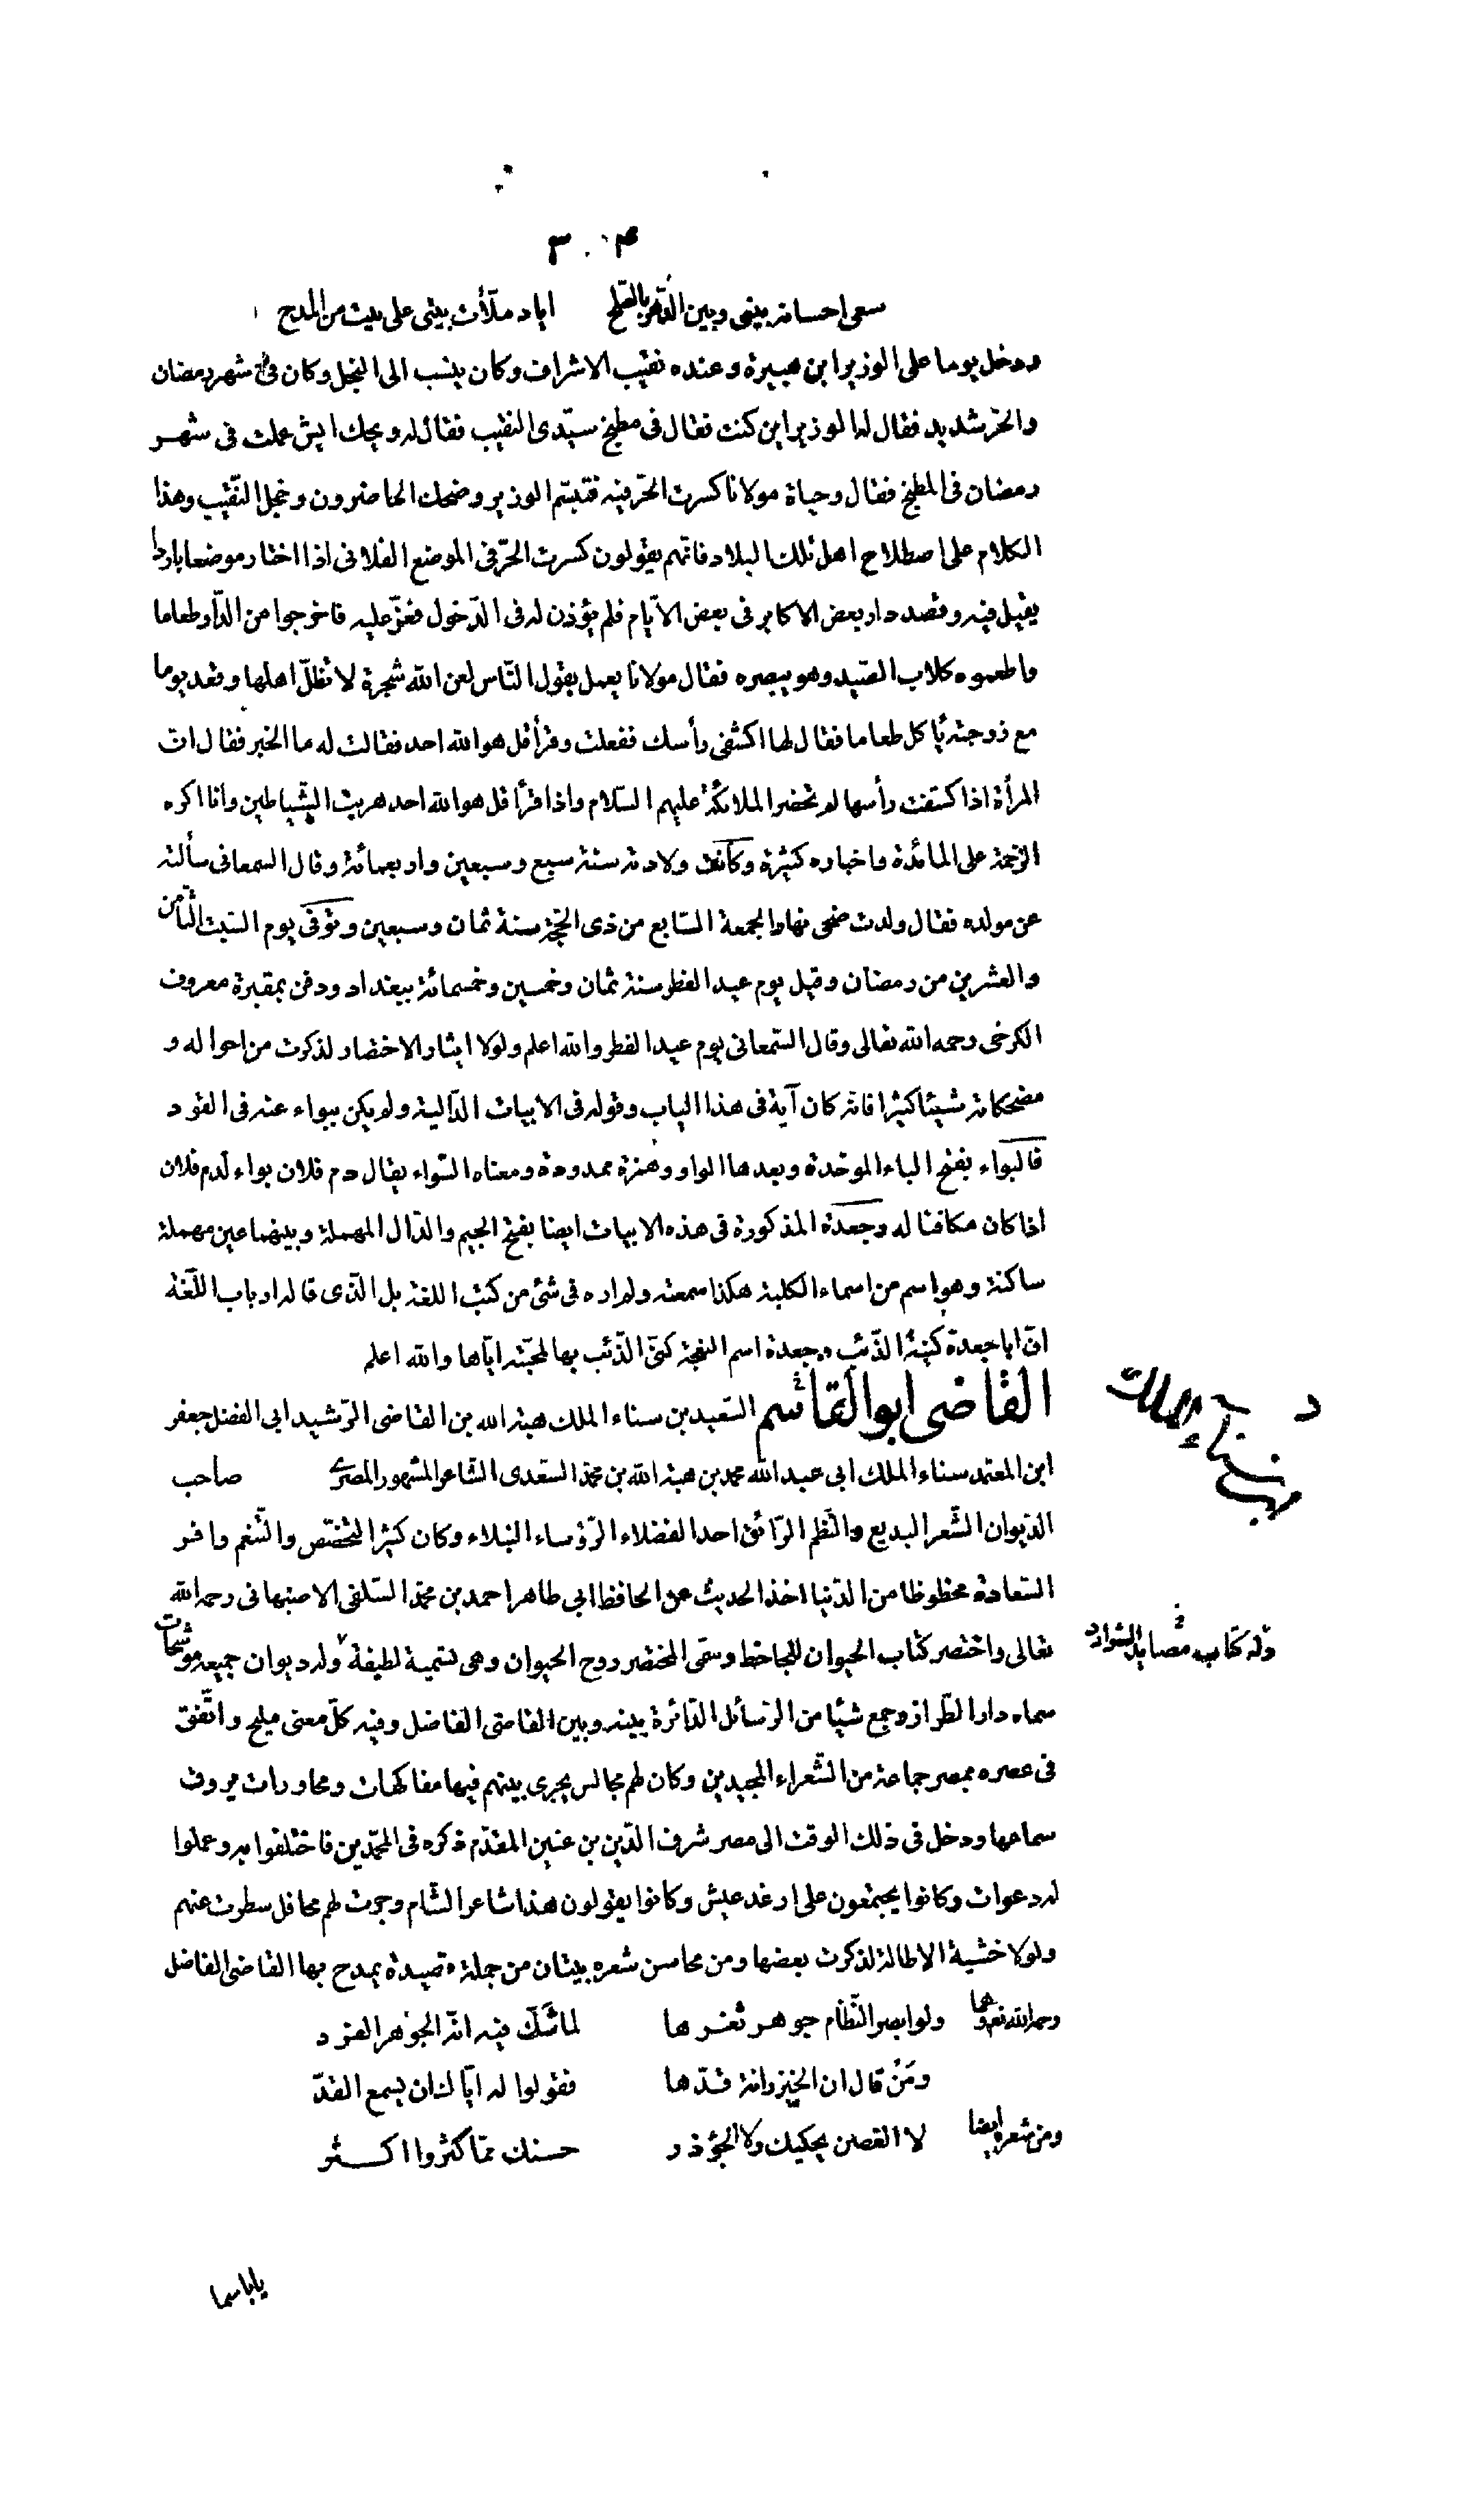 ٣٠٤
سعى احسانه بينى وبين الدّهر بالصّلح اياد ملأت بيتى على بيت من المدح
ودخل يوما على الوزير ابن هبيرة وعنده نقيب الاشراف وكان ينسب الى البخل وكان فى شهر رمضان
والحرّ شديد فقال له الوزير اين كنت فقال فى مطبخ سيّدى النقيب فقال له ويحك ايش عملت فى شهر
رمضان فى المطبخ فقال وحياة مولانا كسرت الحرّ فيه فتبسّم الوزير وضحك الحاضرون وخجل النّقيب وهذا
الكلام على اصطلاح اهل تلك البلاد فانّهم يقولون كسرت الحرّ فى الموضع الفلانى اذا اختار موضعا باردا
يقيل فيه وقصد دار بعض الاكابر فى بعض الايّام فلم يؤذن له فى الدّخول فعزّ عليه فاخرجوا من الدّار طعاما
واطعموه كلاب الصّيد وهو يبصره فقال مولانا يعمل بقول النّاس لعن الله شجرة لا تظلّ اهلها وقعد يوما
مع زوجته يأكل طعاما فقال لها اكشفى رأسك ففعلت وقرأ قل هو الله احد فقالت له ما الخبر فقال انّ
المرأة اذا كشفت رأسها لم تحضر الملائكة عليهم السّلام واذا قرأ قل هو الله احد هربت الشّياطين وانا اكره
الزحمة على المائدة واخباره كثيرة وكانت ولادته سنة سبع وسبعين واربعمائة وقال السمعانى سألته
عن مولده فقال ولدت ضحى نهار الجمعة السّابع من ذى الحجّة سنة ثمان وسبعين وتوفّى يوم السّبت الثّامن
والعشرين من رمضان وقيل يوم عيد الفطر سنة ثمان وخمسين وخمسمائة ببغداد ودفن بمقبرة معروف
الكرخى رحمه الله تعالى وقال السّمعانى يوم عيد الفطر والله اعلم ولولا ايثار الاختصار لذكرت من احواله و
مضحكاته شيئا كثيرا فانّه كان آية فى هذا الباب وقوله فى الابيات الدّالية ولم يكن ببواء عنه فى القود
فالبواء بفتح الباء الموحّدة وبعدها الواو وهمزة ممدودة ومعناه السّواء يقال دم فلان بواء لدم فلان
اذا كان مكافئا له وجعدة المذكورة فى هذه الابيات ايضا بفتح الجيم والدّال المهملة وبينهما عين مهملة
ساكنة وهو اسم من اسماء الكلبة هكذا سمعته ولم اره فى شئ من كتب اللغة بل الّذى قاله ارباب اللّغة
انّ ابا جعدة كنية الذّئب وجعدة اسم النعجة كنّى الذّئب بها لمحبّته ايّاها والله اعلم
القاضى ابو القاسم السّعيد بن سناء الملك هبة الله بن القاضى الرّشيد ابى الفضل جعفر
ابن المعتمد سناء الملك ابى عبد الله محمد بن هبة الله بن محمّد السّعدى الشّاعر المشهور المصرى صاحب
الدّيوان الشّعر البديع والنّظم الرّائق احد الفضلاء الرّؤساء النبلاء وكان كثير التخصّص والتّنعّم وافر
السّعادة محظوظا من الدّنيا اخذ الحديث عن الحافظ ابى طاهر احمد بن محمّد السّلفى الاصبهانى رحمه الله
تعالى واختصر كتاب الحيوان للجاحظ وسمّى المختصر روح الحيوان وهى تسمية لطيفة وله ديوان جميعه موشحات
وله كتاب مصايد الشوارد
سماه دار الطّراز وجمع شيئا من الرّسائل الدّائرة بينه وبين القاضى الفاضل وفيه كلّ معنى مليح واتّفق
فى عصره بمصر جماعة من الشّعراء المجيدين وكان لهم مجالس يجرى بينهم فيها مفاكهات ومحاورات يروق
سماعها ودخل فى ذلك الوقت الى مصر شرف الدّين بن عنين المقدّم ذكره فى المحمّدين فاحتلفوا به وعملوا
له دعوات وكانوا يجتمعون على ارغد عيش وكانوا يقولون هذا شاعر الشّام وجرت لهم محافل سطرت عنهم
ولولا خشية الاطالة لذكرت بعضها ومن محاسن شعره بيتان من جملة قصيدة يمدح بها القاضى الفاضل
رحمه الله تع وهما ولو ابصر النّظّام جوهر ثغرها لما شكّ فيه انّه الجوهر الفرد
ومَنْ قال ان الخيزرانة قدّها فقولوا له ايّاك ان يسمع القدّ
ومن شعره ايضا لا الغصن يحكيك ولا الجؤذر حسنك ممّا كثّروا اكثر